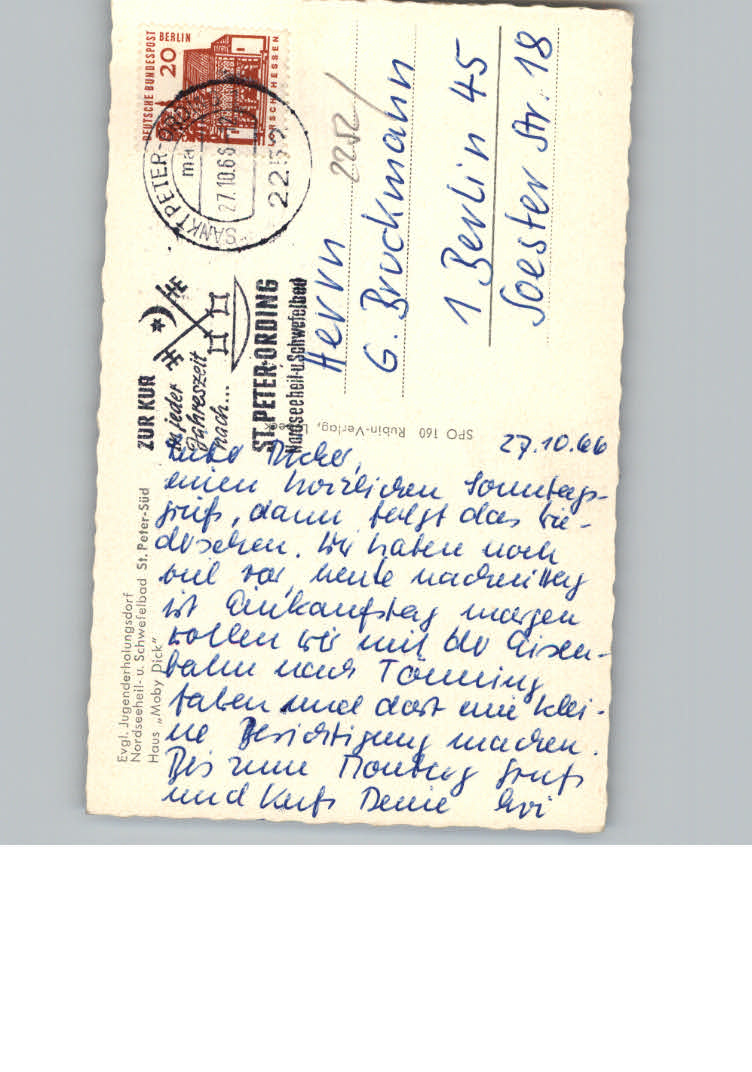 Evgl. Jugenderholungsdorf
Nordseeheil- u. Schwefelbad St. Peter-Süd
Haus „Moby Dick"
SPO 160 Rubin-Verlag,
27.10.66
einen herzlichen Sonntags-
gruß, dann folgt das Wie-
dersehen. Wir haben noch
viel vor, heute nachmittag
ist Einkaufstag morgen
wollen wir mit der Eisen-
bahn nach Tönning
fahren und dort eine klei-
ne Besichtigung machen.
Bis zum Montag Gruß
und Kuß Deine Evi
DEUTSCHE BUNDESPOST BERLIN
20
HESSEN
SANKT PETER-
27.10.66
2252
ZUR KUR
zu jeder
Jahreszeit
nach...
ST. PETER-ORDING
Nordseeheil-u.Schwefelbad
2252/
Herrn
G. Bruckmann
1 Berlin 45
Soester Str. 18